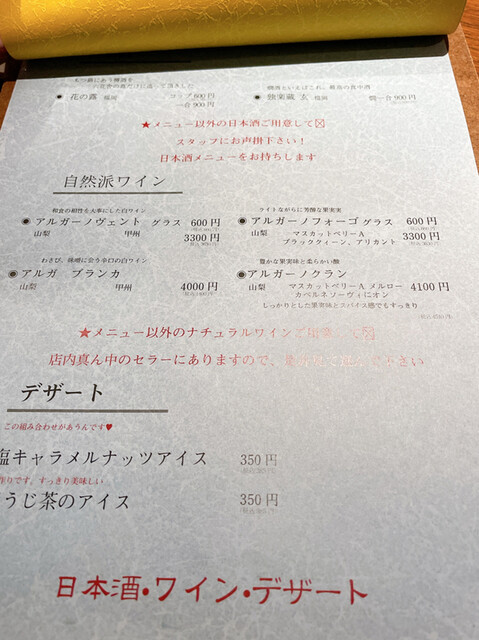 もつ鍋にあう燗酒を
花の露 福岡
コップ 600円
一合 900円
燗酒といえばこれ。最高の食中酒
独楽蔵 玄 福岡
燗一合 900円
★メニュー以外の日本酒ご用意して〼
スタッフにお声掛下さい！
日本酒メニューをお持ちします
自然派ワイン
和食の相性を大事にした白ワイン
アルガーノヴェント グラス 600円
山梨 甲州 3300円
ライトながらに芳醇な果実実
アルガーノフォーゴ グラス 600円
山梨 マスカットベリーA 3300円
ブラッククィーン、アリカント
わさび、味噌に会う辛口の白ワイン
アルガ ブランカ 4000円
山梨 甲州
豊かな果実味と柔らかい酸
アルガーノクラン 4100円
山梨 マスカットベリーA メルロー
カベルネソーヴィニオン
しっかりとした果実味とスパイス感でもすっきり
★メニュー以外のナチュラルワインご用意して〼
店内真ん中のセラーにありますので、
下さい
デザート
この組み合わせがあうんです♥
塩キャラメルナッツアイス 350円
作りです、すっきり美味しい
うじ茶のアイス 350円
日本酒・ワイン・デザート